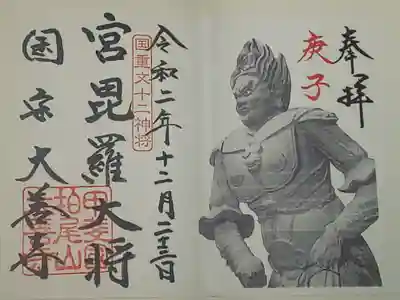 奉拝
庚子
令和二年十二月二十三日
国重文十二神将
宮毘羅大将
国宝大善寺
柏尾山